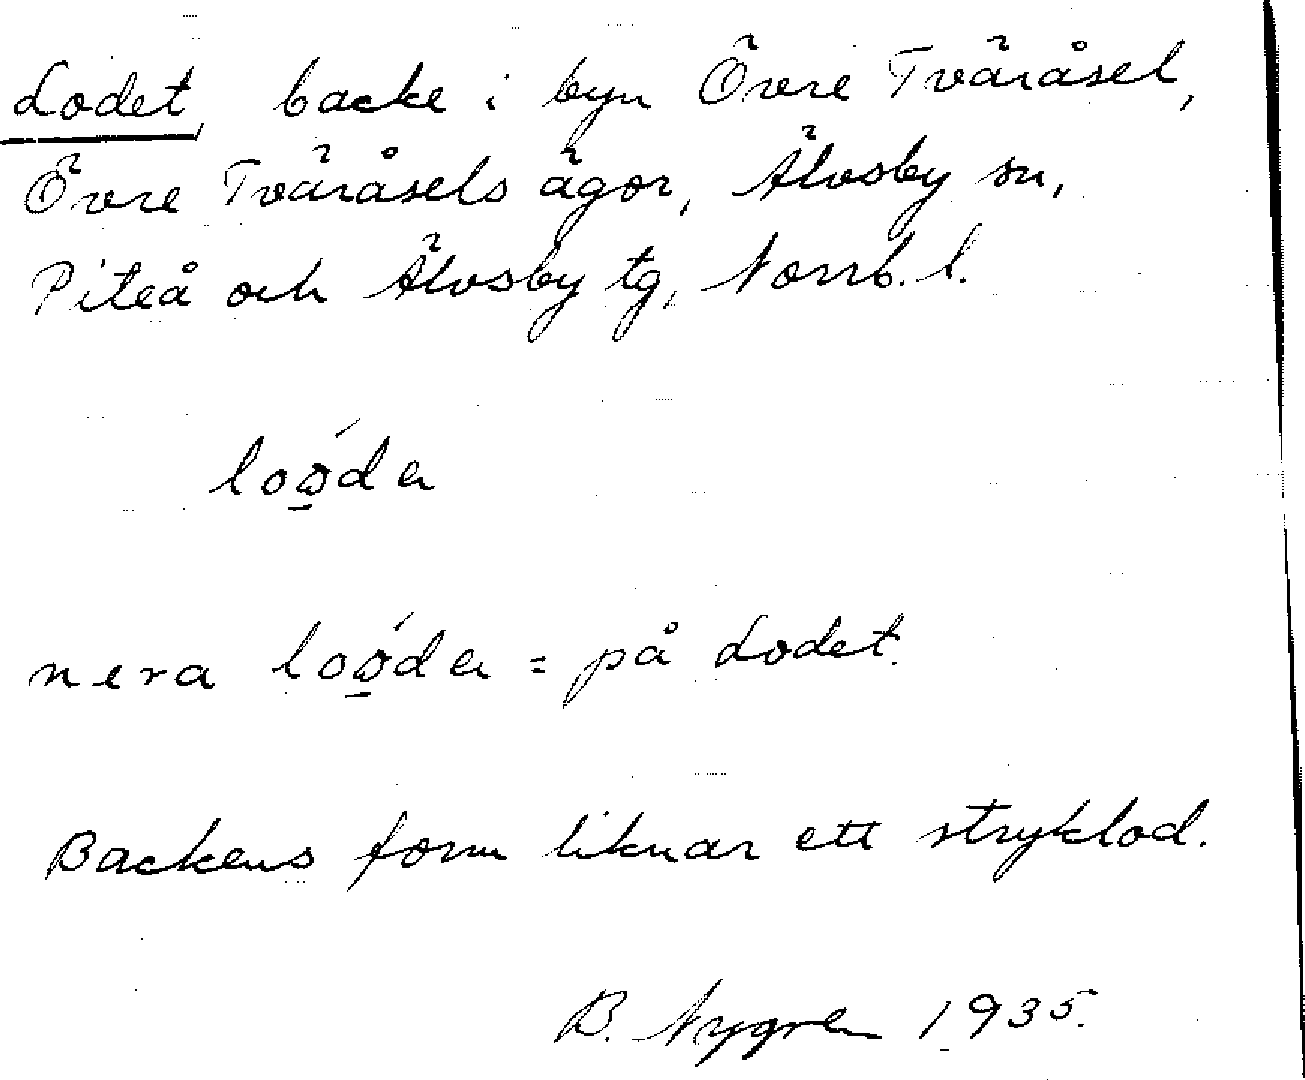 Lodet, backe i byn Övre Tväråsel,
Övre Tväråsels ägor, Älvsby sn,
Piteå och Älvsby tg, Norrb. l.
loo̱´da
nera loo̱´da = på Lodet.
Backens form liknar ett stryklod.
B. Nygren 1935.